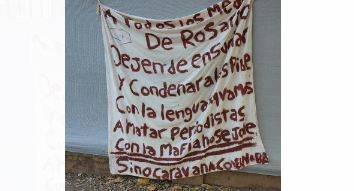 A todos los Med
De Rosario
Dejen de ensuciar
y Condenar a los Pibe
Con la lengua vamos
A Matar Periodistas
Con la Mafia no Se Jode
Sino caravana